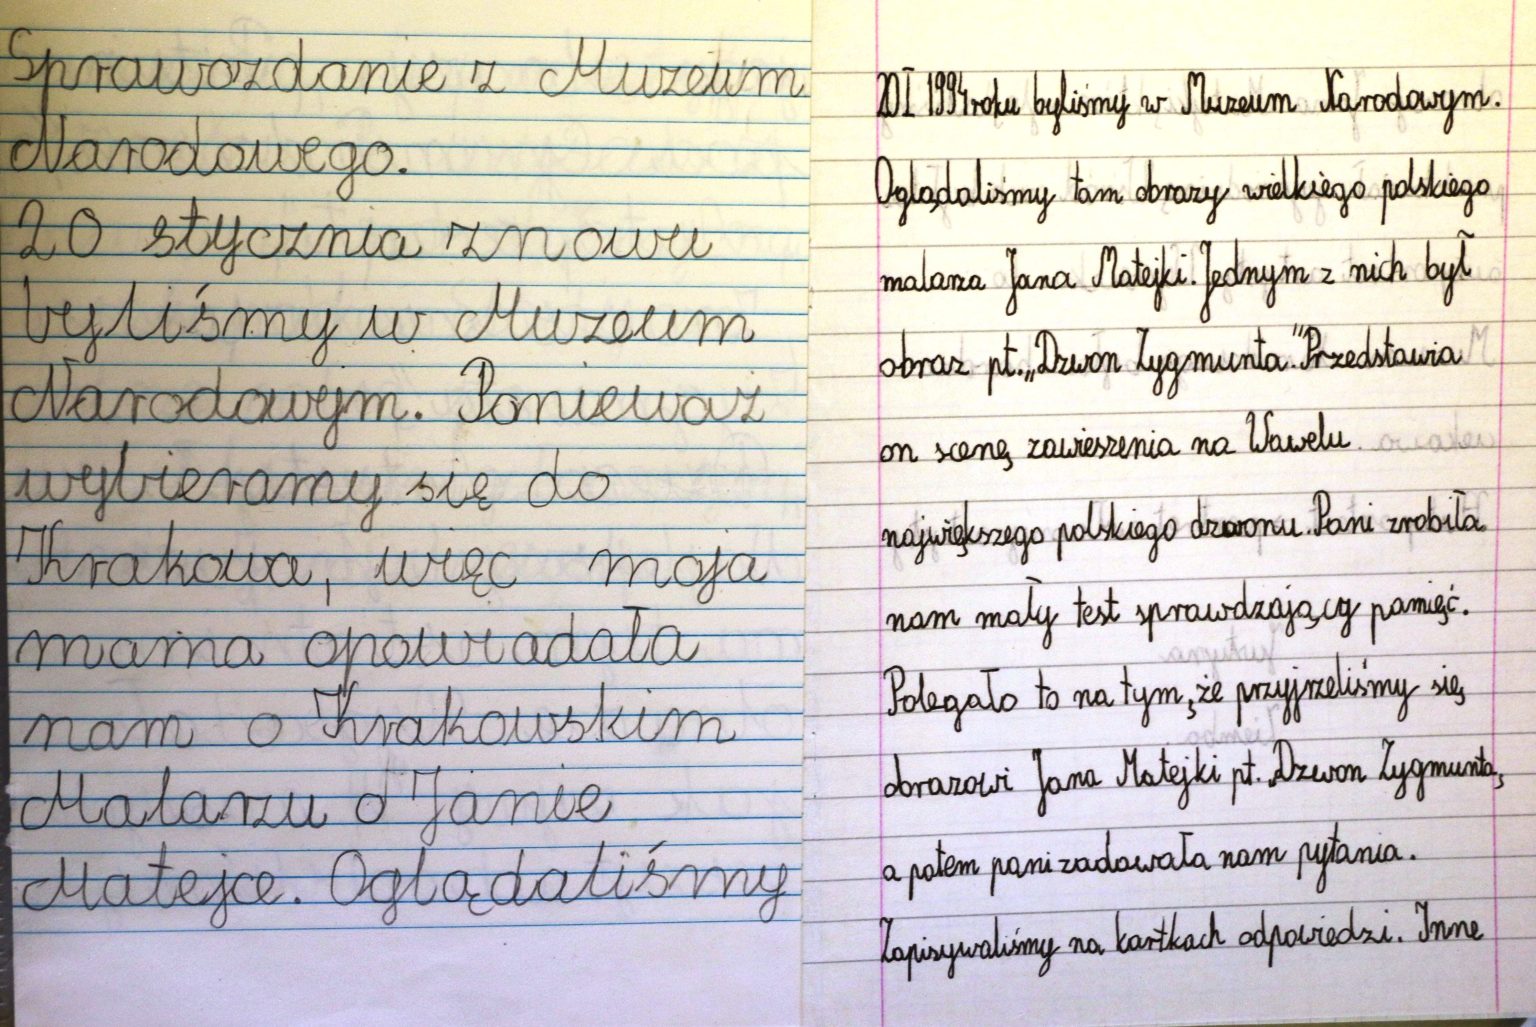 Sprawozdanie z Muzeum
Narodowego.
20 stycznia znowu
byliśmy w Muzeum
Narodowym. Ponieważ
wybieramy się do
Krakowa, więc moja
mama opowiadała
nam o Krakowskim
Malarzu o Janie
Matejce. Oglądaliśmy
20 I 1994 roku byliśmy w Muzeum Narodowym.
Oglądaliśmy tam obrazy wielkiego polskiego
malarza Jana Matejki. Jednym z nich był
obraz pt. „Dzwon Zygmunta.” Przedstawia
on scenę zawieszenia na Wawelu
największego polskiego dzwonu. Pani zrobiła
nam mały test sprawdzający pamięć.
Polegało to na tym, że przyjrzeliśmy się
obrazowi Jana Matejki pt. „Dzwon Zygmunta,
a potem pani zadawała nam pytania.
Zapisywaliśmy na kartkach odpowiedzi. Inne